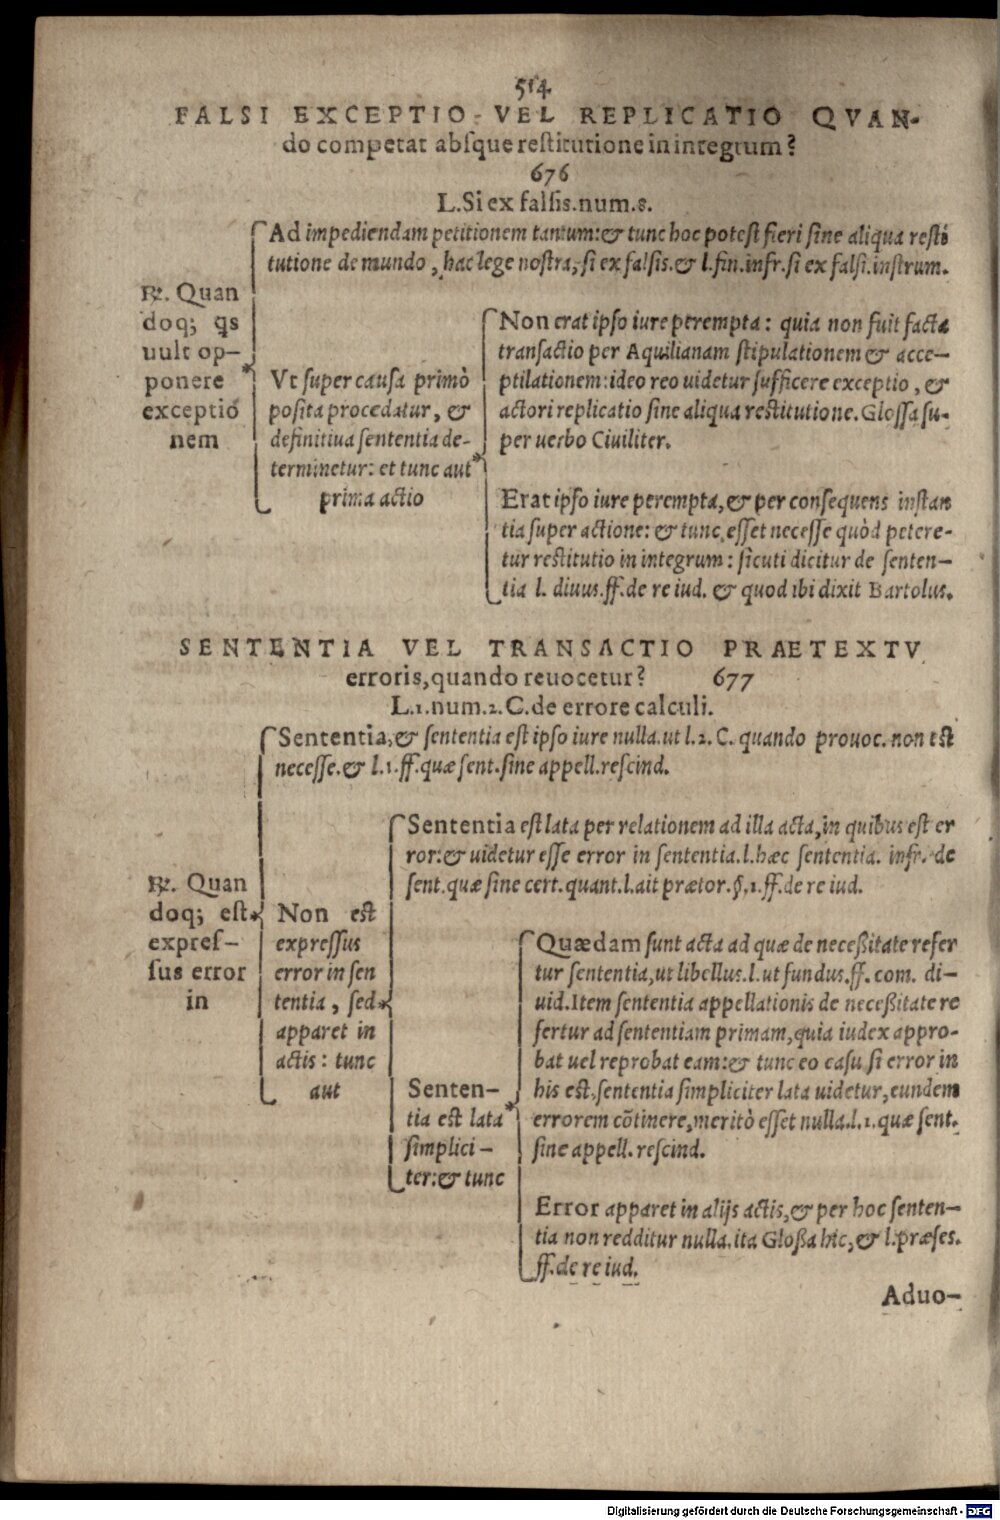 514.
FALSI EXCEPTIO VEL REPLICATIO QVAN-
do competat absque restitutione in integrum?
676
L. Si ex falsis. num. 8.
Ad impediendam petitionem tantum: & tunc hoc potest fieri sine aliqua resti
tutione de mundo, hac lege nostra, si ex falsis. & l. fin. infr. si ex falsi. instrum.
℞. Quan
doq; qs
uult op-
ponere
exceptio
nem
Vt super causa primò
posita procedatur, &
definitiua sententia de-
terminetur: et tunc aut
prima actio
Non erat ipso iure perempta: quia non fuit facta
transactio per Aquilianam stipulationem & acce-
ptilationem: ideo reo uidetur sufficere exceptio, &
actori replicatio sine aliqua restitutione. Glossa su-
per uerbo Ciuiliter.
Erat ipso iure perempta, & per consequens instan
tia super actione: & tunc esset necesse quòd petere-
tur restitutio in integrum: sicuti dicitur de senten-
tia l. diuus. ff. de re iud. & quod ibi dixit Bartolus.
SENTENTIA VEL TRANSACTIO PRAETEXTV
erroris, quando reuocetur? 677
L. 1. num. 2. C. de errore calculi.
Sententia, & sententia est ipso iure nulla. ut l. 2. C. quando prouoc. non est
necesse. & l. 1. ff. quæ sent. sine appell. rescind.
℞. Quan
doq; est
expres-
sus error
in
Non est
expressus
error in sen
tentia, sed
apparet in
actis: tunc
aut
Sententia est lata per relationem ad illa acta, in quibus est er
ror: & uidetur esse error in sententia. l. hæc sententia. infr. de
sent. quæ sine cert. quant. l. ait prætor. §. 1. ff. de re iud.
Senten-
tia est lata
simplici-
ter: & tunc
Quædam sunt acta ad quæ de neceßitate refer
tur sententia, ut libellus. l. ut fundus. ff. com. di-
uid. Item sententia appellationis de neceßitate re
fertur ad sententiam primam, quia iudex appro-
bat uel reprobat eam: & tunc eo casu si error in
his est, sententia simpliciter lata uidetur, eundem
errorem cõtinere, meritò esset nulla. l. 1. quæ sent.
sine appell. rescind.
Error apparet in alijs actis, & per hoc senten-
tia non redditur nulla. ita Gloßa hic, & l. præses.
ff. de re iud.
Aduo-
Digitalisierung gefördert durch die Deutsche Forschungsgemeinschaft - DFG